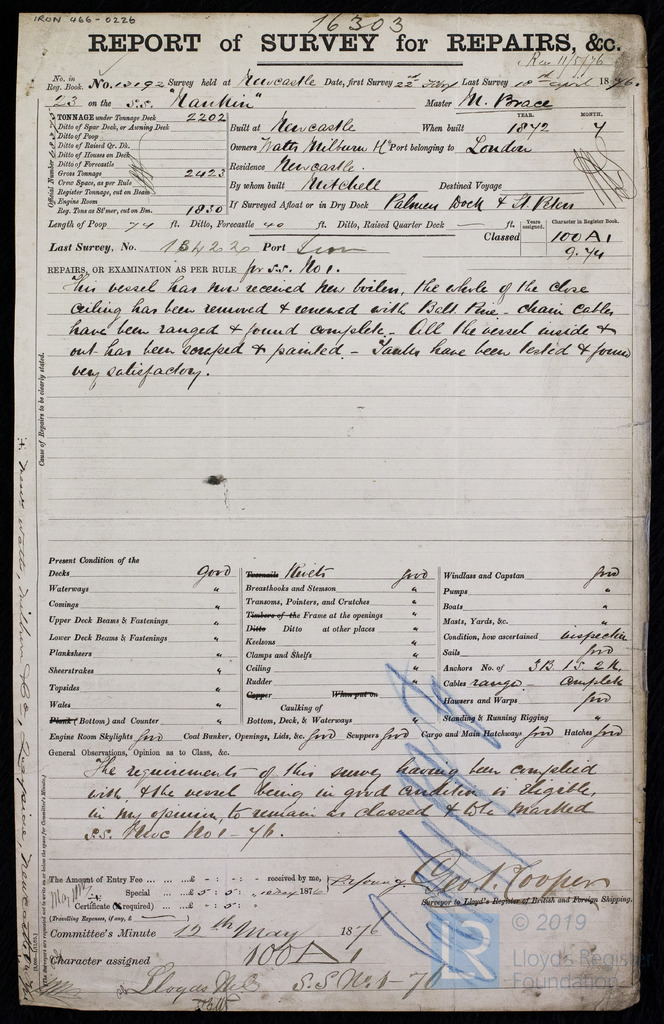 IRON 466-0226
16303
REPORT of SURVEY for REPAIRS, &c.
Rec 11/5/76
No. in Reg. Book. No. 13192 Survey held at Newcastle Date, first Survey 22nd Last Survey 18 April 1876.
23 on the S.S. "Nankin" Master M. Brace
TONNAGE under Tonnage Deck 2202
Ditto of Spar Deck, or Awning Deck
Ditto of Poop
Ditto of Raised Qr. Dk.
Ditto of Houses on Deck
Ditto of Forecastle
Gross Tonnage 2423
Crew Space, as per Rule
Register Tonnage, cut on Beam
Engine Room
Reg. Tons as St'mer, cut on Bm. 1830
Official Number
YEAR. MONTH.
Built at Newcastle When built 1872 7
Owners Watts Milburn & Co Port belonging to London
Residence Newcastle.
By whom built Mitchell Destined Voyage
If Surveyed Afloat or in Dry Dock Palmers Dock & St. Peters
Length of Poop 74 ft. Ditto, Forecastle 40 ft. Ditto, Raised Quarter Deck — ft.
Years assigned. Character in Register Book.
Classed 100A1
9.74
Last Survey, No. 13422 Port
REPAIRS, OR EXAMINATION AS PER RULE for S.S. No 1.
This vessel has now received new boilers, the whole of the close
ceiling has been removed & renewed with Balt. Pine. - chain cables
have been ranged & found complete. - All the vessel inside &
out has been scraped & painted. - Tanks have been tested & found
very satisfactory.
Cause of Repairs to be clearly stated.
Present Condition of the
Decks Good
Waterways "
Comings "
Upper Deck Beams & Fastenings "
Lower Deck Beams & Fastenings "
Planksheers "
Sheerstrakes "
Topsides "
Wales "
Plank (Bottom) and Counter "
Treenails Rivets good
Breasthooks and Stemson "
Transoms, Pointers, and Crutches "
Timbers of the Frame at the openings "
Ditto Ditto at other places "
Keelsons "
Clamps and Shelfs "
Ceiling "
Rudder "
Copper When put on
Caulking of
Bottom, Deck, & Waterways "
Windlass and Capstan good
Pumps "
Boats "
Masts, Yards, &c. "
Condition, how ascertained inspection
Sails good
Anchors No. of 3B. 1S. 2K.
Cables range - Complete
Hawsers and Warps good
Standing & Running Rigging "
Engine Room Skylights good Coal Bunker, Openings, Lids, &c. good Scuppers good Cargo and Main Hatchways good Hatches good
General Observations, Opinion as to Class, &c.
The requirements of this survey having been complied
with & the vessel being in good condition is eligible,
in my opinion, to remain as classed & to be marked
S.S. Nwc No 1 - 76.
The Amount of Entry Fee ... ... ...£ - : - : - received by me,
Special ... ...£ 5 : 5 : 1876
Certificate (if required) ...£ - : - : -
(Travelling Expenses, if any, £ )
Geo. J. Cooper
Surveyor to Lloyd's Register of British and Foreign Shipping.
Committee's Minute 12th May 1876
Character assigned 100A1
Lloyds S.S. No 1 - 76
LR
© 2019
Lloyd's Register
Foundation